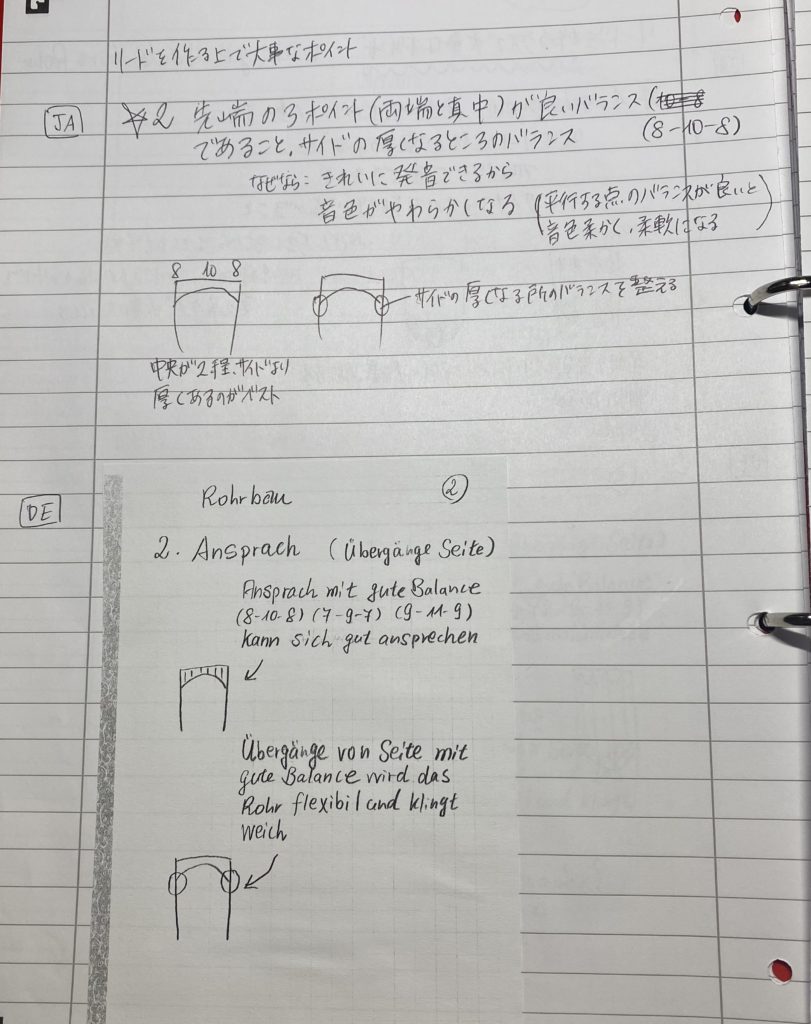 リードを作る上で大事なポイント
JA
☆2 先端の3ポイント(両端と真中)が良いバランス(
であること、サイドの厚くなるところのバランス (8-10-8)
なぜなら: きれいに発音できるから
音色がやわらかくなる (平行する点のバランスが良いと
音色柔かく、柔軟になる)
8 10 8
サイドの厚くなる所のバランスを整える
中央が2程、サイドより
厚くあるのがベスト
DE
Rohrbau ②
2. Ansprach (Übergänge Seite)
Ansprach mit gute Balance
(8-10-8) (7-9-7) (9-11-9)
kann sich gut ansprechen
Übergänge von Seite mit
gute Balance wird das
Rohr flexibil und klingt
weich